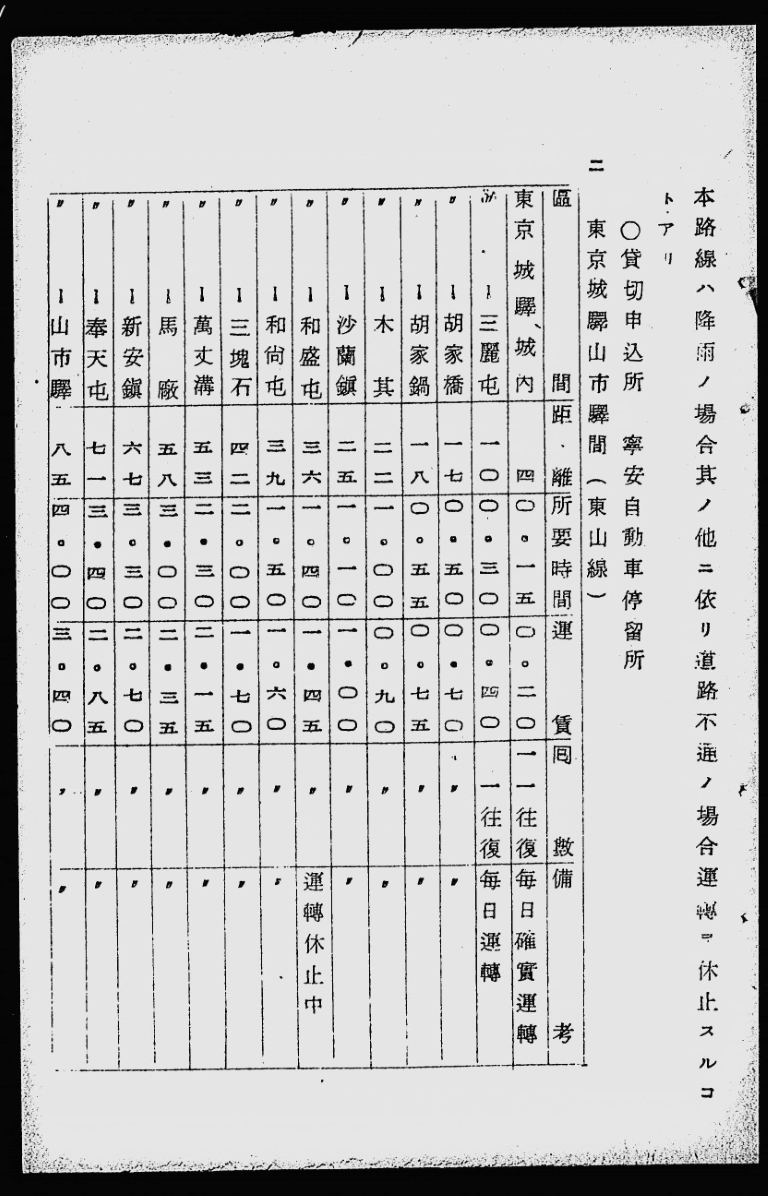 本路線ハ降雨ノ場合其ノ他ニ依リ道路不通ノ場合運轉ヲ休止スルコ
トアリ
〇貸切申込所　寧安自動車停留所
二　東京城驛山市驛間(東山線)
區間　距離　所要時間　運賃　囘數　備考
東京城驛、城內　四　〇。一五　〇。二〇　一一往復　每日確實運轉
〃　ー三麗屯　一〇　〇。三〇　〇。四〇　一往復　每日運轉
〃　ー胡家橋　一七　〇。五〇　〇。七〇　〃　〃
〃　ー胡家鍋　一八　〇。五五　〇。七五　〃　〃
〃　ー木其　二二　一。〇〇　〇。九〇　〃　〃
〃　ー沙蘭鎭　二五　一。一〇　一。〇〇　〃　〃
〃　ー和盛屯　三六　一。四〇　一。四五　〃　運轉休止中
〃　ー和尙屯　三九　一。五〇　一。六〇　〃　〃
〃　ー三塊石　四二　二。〇〇　一。七〇　〃　〃
〃　ー萬丈溝　五三　二。三〇　二。一五　〃　〃
〃　ー馬廠　五八　三。〇〇　二。三五　〃　〃
〃　ー新安鎭　六七　三。三〇　二。七〇　〃　〃
〃　ー奉天屯　七一　三。四〇　二。八五　〃　〃
〃　ー山市驛　八五　四。〇〇　三。四〇　〃　〃